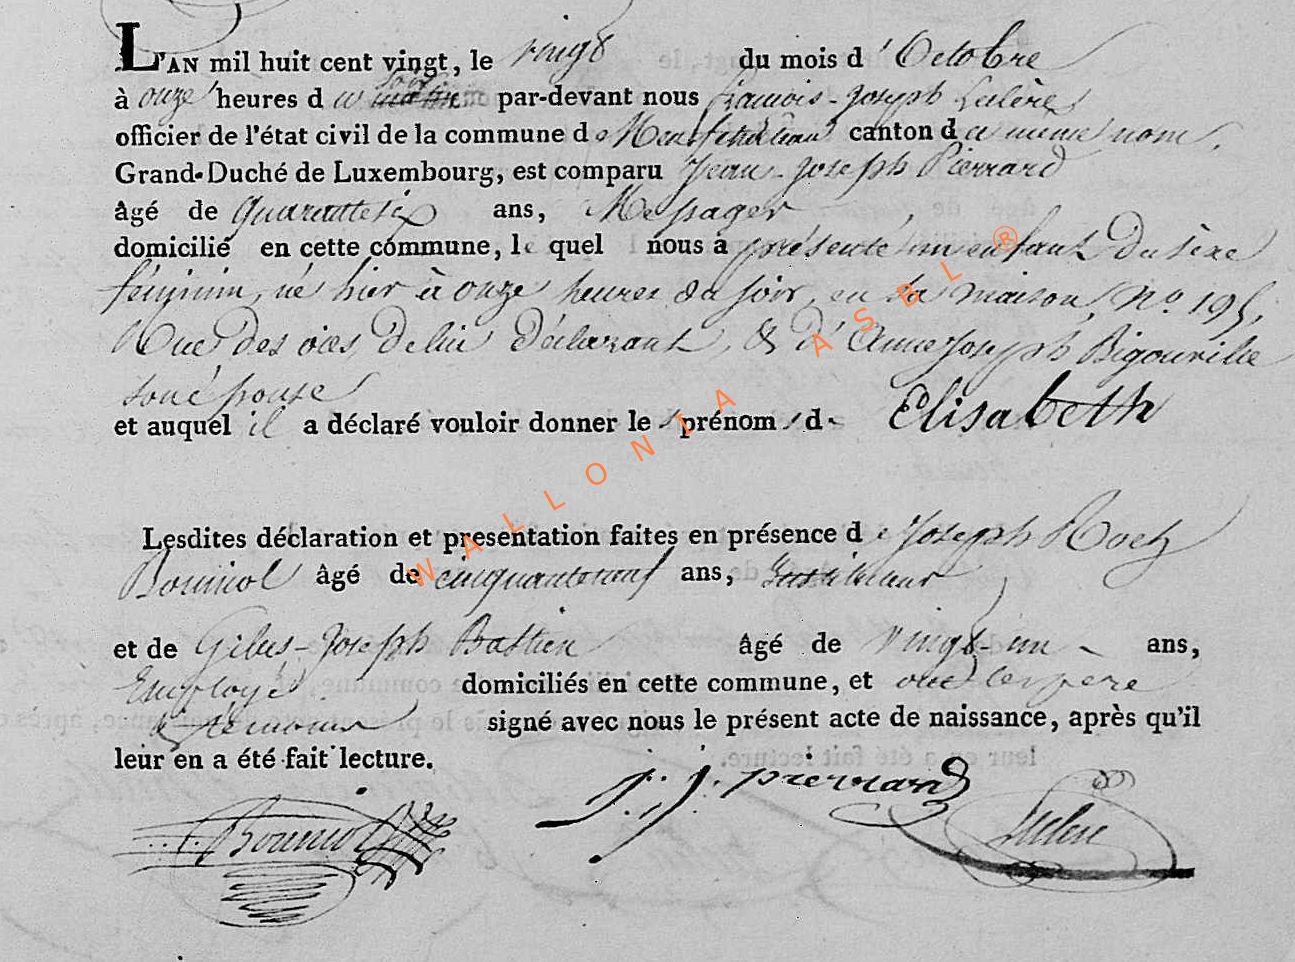 L'AN mil huit cent vingt, le vingt du mois d'Octobre
à onze heures du soir par-devant nous françois-Joseph
officier de l'état civil de la commune de Neufchâteau canton du même nom,
Grand-Duché de Luxembourg, est comparu Jean-Joseph Pierrard
âgé de Quarante six ans, Messager
domicilié en cette commune, lequel nous a présenté un enfant Du sèxe
féminin, né hier à onze heures du soir, en sa maison, No. 195,
Rue des De lui Déclarant, & d'Anne Joseph
son épouse
et auquel il a déclaré vouloir donner les prénoms de Elisabeth
Lesdites déclaration et presentation faites en présence de Joseph
Bouniol âgé de cinquante neuf ans, Instituteur
et de Giles-Joseph Bastien âgé de vingt-un ans,
Employé domiciliés en cette commune, et ont les père
& témoins signé avec nous le présent acte de naissance, après qu'il
leur en a été fait lecture.
J. J. pierrard
Bouniol
WALLONIA ASBL ®